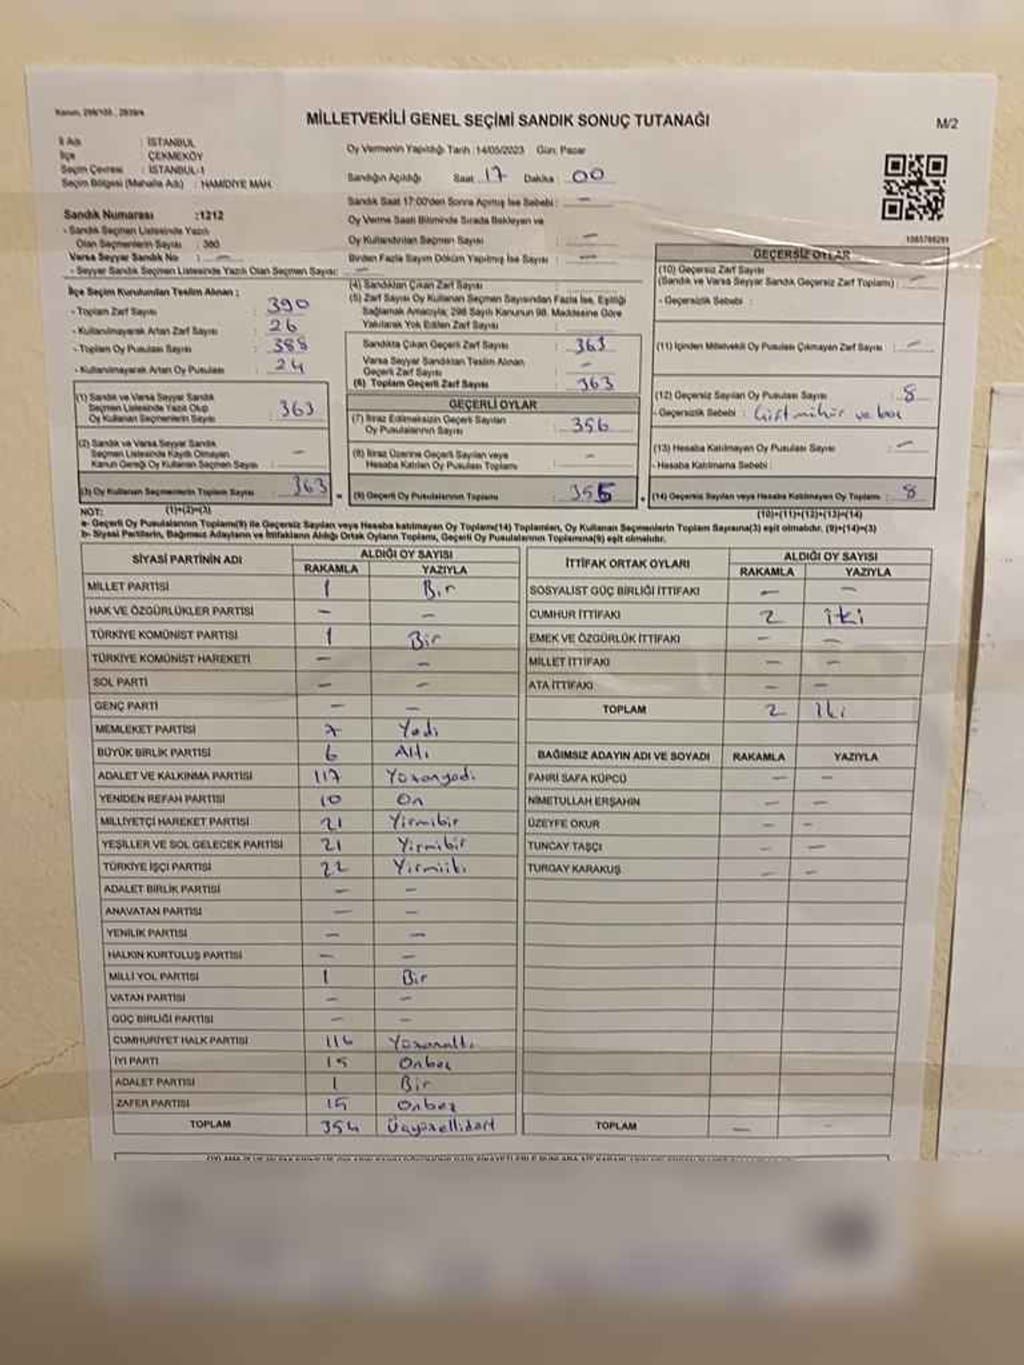 Kanun, 298/105 , 2839/4
MİLLETVEKİLİ GENEL SEÇİMİ SANDIK SONUÇ TUTANAĞI
M/2
İl Adı : İSTANBUL
İlçe : ÇEKMEKÖY
Seçim Çevresi : İSTANBUL-1
Seçim Bölgesi (Mahalle Adı) : HAMİDİYE MAH.
Oy Vermenin Yapıldığı Tarih :14/05/2023 Gün: Pazar
Sandığın Açıldığı Saat 17 Dakika 00
Sandık Saat 17:00'den Sonra Açılmış İse Sebebi : —
Oy Verme Saati Bitiminde Sırada Bekleyen ve
Oy Kullandırılan Seçmen Sayısı —
Birden Fazla Sayım Döküm Yapılmış İse Sayısı —
Sandık Numarası :1212
- Sandık Seçmen Listesinde Yazılı
Olan Seçmenlerin Sayısı : 380
Varsa Seyyar Sandık No : —
- Seyyar Sandık Seçmen Listesinde Yazılı Olan Seçmen Sayısı: —
İlçe Seçim Kurulundan Teslim Alınan :
- Toplam Zarf Sayısı : 390
- Kullanılmayarak Artan Zarf Sayısı : 26
- Toplam Oy Pusulası Sayısı : 388
- Kullanılmayarak Artan Oy Pusulası : 24
(1) Sandık ve Varsa Seyyar Sandık
Seçmen Listesinde Yazılı Olup
Oy Kullanan Seçmenlerin Sayısı : 363
(2) Sandık ve Varsa Seyyar Sandık
Seçmen Listesinde Kayıtlı Olmayan
Kanun Gereği Oy Kullanan Seçmen Sayısı : —
(3) Oy Kullanan Seçmenlerin Toplam Sayısı : 363
(1)+(2)=(3)
(4) Sandıktan Çıkan Zarf Sayısı :
(5) Zarf Sayısı Oy Kullanan Seçmen Sayısından Fazla İse, Eşitliği
Sağlamak Amacıyla; 298 Sayılı Kanunun 98. Maddesine Göre
Yakılarak Yok Edilen Zarf Sayısı :
Sandıkta Çıkan Geçerli Zarf Sayısı : 363
Varsa Seyyar Sandıktan Teslim Alınan
Geçerli Zarf Sayısı : —
(6) Toplam Geçerli Zarf Sayısı : 363
GEÇERLİ OYLAR
(7) İtiraz Edilmeksizin Geçerli Sayılan
Oy Pusulalarının Sayısı : 356
(8) İtiraz Üzerine Geçerli Sayılan veya
Hesaba Katılan Oy Pusulaları Toplamı : —
(9) Geçerli Oy Pusulalarının Toplamı : 355
GEÇERSİZ OYLAR
(10) Geçersiz Zarf Sayısı
(Sandık ve Varsa Seyyar Sandık Geçersiz Zarf Toplamı) : —
- Geçersizlik Sebebi :
(11) İçinden Milletvekili Oy Pusulası Çıkmayan Zarf Sayısı : —
(12) Geçersiz Sayılan Oy Pusulası Sayısı : 8
- Geçersizlik Sebebi : Çift mühür ve boş
(13) Hesaba Katılmayan Oy Pusulası Sayısı : —
- Hesaba Katılmama Sebebi :
(14) Geçersiz Sayılan veya Hesaba Katılmayan Oy Toplamı : 8
(10)+(11)+(12)+(13)=(14)
NOT:
a- Geçerli Oy Pusulalarının Toplamı(9) ile Geçersiz Sayılan veya Hesaba katılmayan Oy Toplamı(14) Toplamları, Oy Kullanan Seçmenlerin Toplam Sayısına(3) eşit olmalıdır. (9)+(14)=(3)
b- Siyasi Partilerin, Bağımsız Adayların ve İttifakların Aldığı Ortak Oyların Toplamı, Geçerli Oy Pusulalarının Toplamına(9) eşit olmalıdır.
SİYASİ PARTİNİN ADI ALDIĞI OY SAYISI
RAKAMLA YAZIYLA
MİLLET PARTİSİ 1 Bir
HAK VE ÖZGÜRLÜKLER PARTİSİ — —
TÜRKİYE KOMÜNİST PARTİSİ 1 Bir
TÜRKİYE KOMÜNİST HAREKETİ — —
SOL PARTİ — —
GENÇ PARTİ — —
MEMLEKET PARTİSİ 7 Yedi
BÜYÜK BİRLİK PARTİSİ 6 Altı
ADALET VE KALKINMA PARTİSİ 117 Yüzonyedi
YENİDEN REFAH PARTİSİ 10 On
MİLLİYETÇİ HAREKET PARTİSİ 21 Yirmibir
YEŞİLLER VE SOL GELECEK PARTİSİ 21 Yirmibir
TÜRKİYE İŞÇİ PARTİSİ 22 Yirmiiki
ADALET BİRLİK PARTİSİ — —
ANAVATAN PARTİSİ — —
YENİLİK PARTİSİ — —
HALKIN KURTULUŞ PARTİSİ — —
MİLLİ YOL PARTİSİ 1 Bir
VATAN PARTİSİ — —
GÜÇ BİRLİĞİ PARTİSİ — —
CUMHURİYET HALK PARTİSİ 116 Yüzonaltı
İYİ PARTİ 15 Onbeş
ADALET PARTİSİ 1 Bir
ZAFER PARTİSİ 15 Onbeş
TOPLAM 354 Üçyüzellidört
İTTİFAK ORTAK OYLARI ALDIĞI OY SAYISI
RAKAMLA YAZIYLA
SOSYALİST GÜÇ BİRLİĞİ İTTİFAKI — —
CUMHUR İTTİFAKI 2 iki
EMEK VE ÖZGÜRLÜK İTTİFAKI — —
MİLLET İTTİFAKI — —
ATA İTTİFAKI — —
TOPLAM 2 İki
BAĞIMSIZ ADAYIN ADI VE SOYADI RAKAMLA YAZIYLA
FAHRİ SAFA KÜPCÜ — —
NİMETULLAH ERŞAHİN — —
ÜZEYFE OKUR — —
TUNCAY TAŞÇI — —
TURGAY KARAKUŞ — —
TOPLAM — —